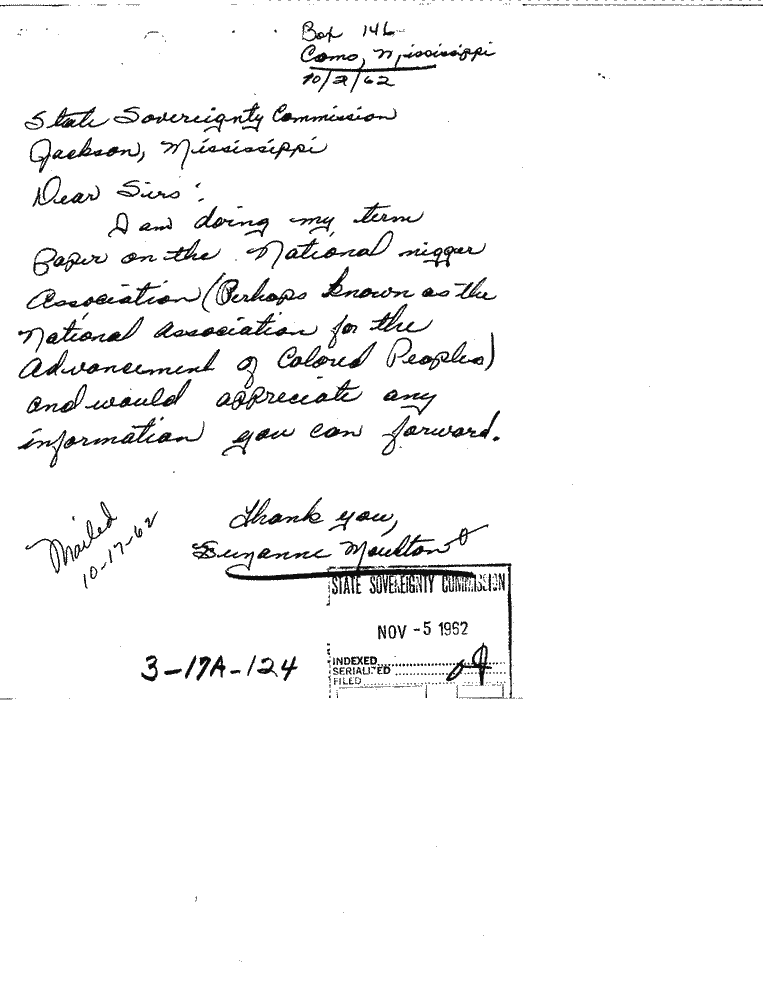 Box 146
Como, Mississippi
10/2/62
State Sovereignty Commission
Jackson, Mississippi
Dear Sirs:
I am doing my term
paper on the National nigger
Association (Perhaps known as the
National Association for the
Advancement of Colored Peoples)
and would appreciate any
information you can forward.
Thank you,
Suzanne Moulton
Mailed
10-17-62
STATE SOVEREIGNTY COMMISSION
NOV -5 1962
3-17A-124
INDEXED
SERIALIZED
FILED